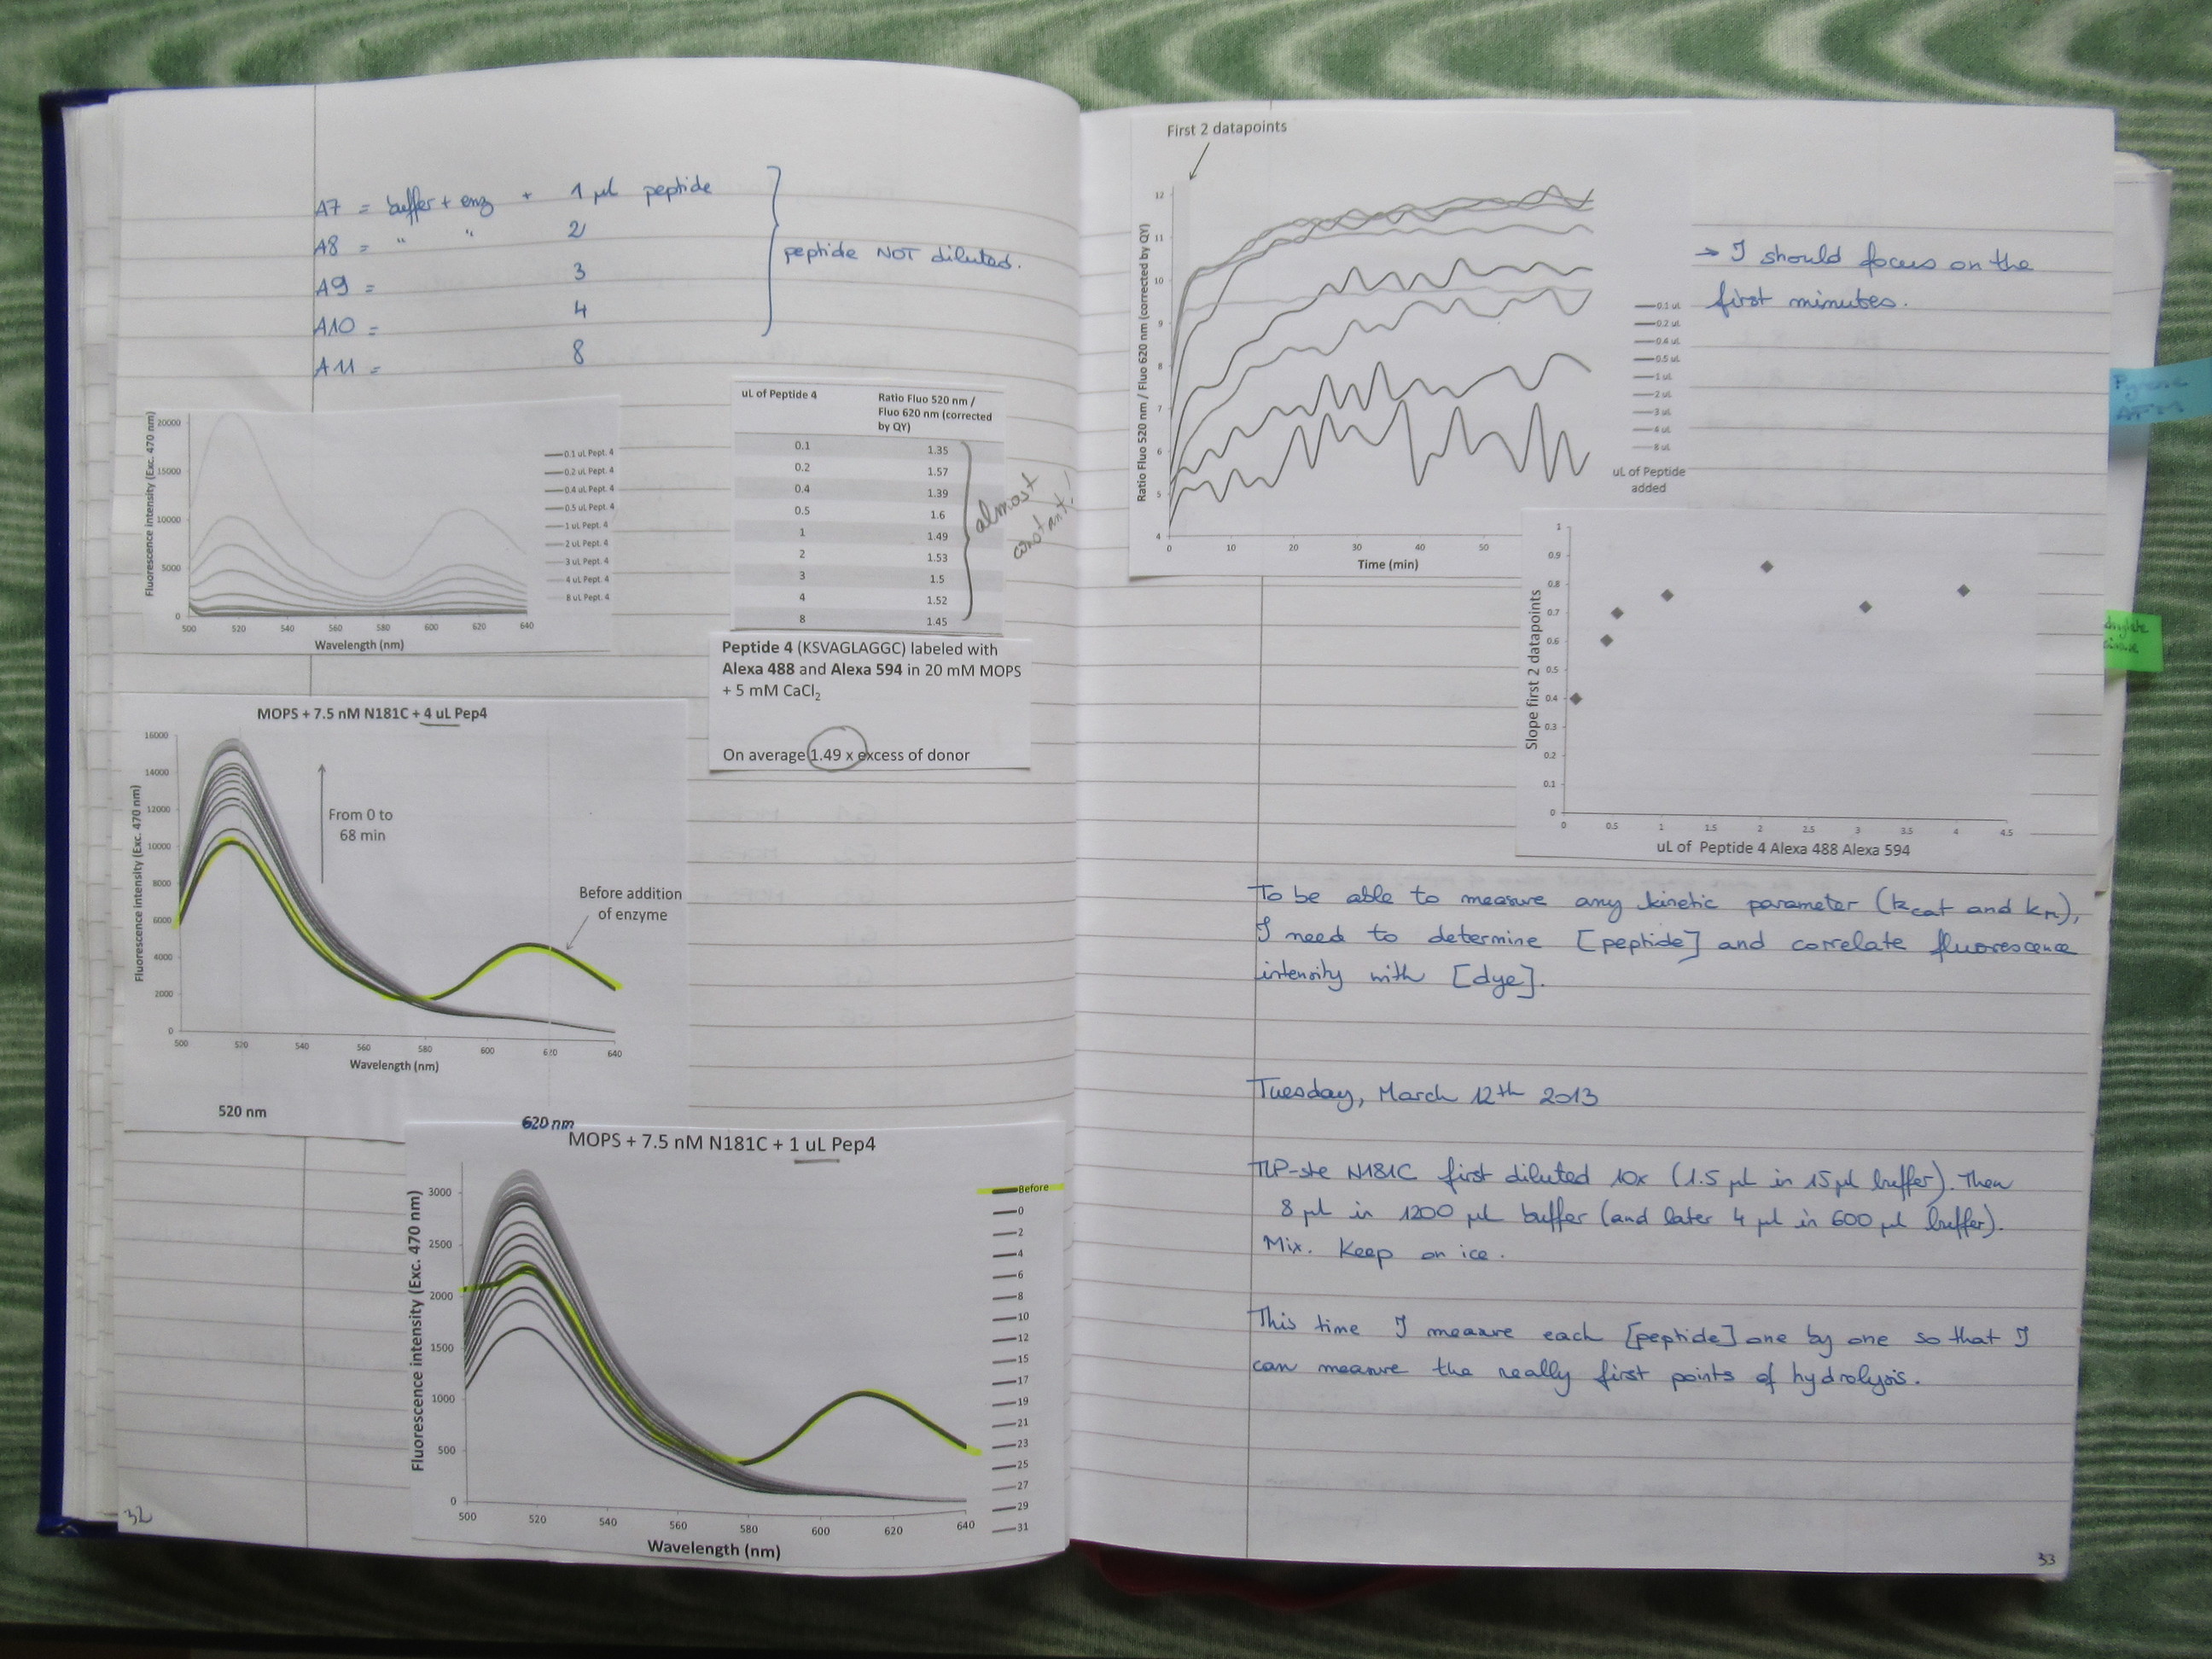 A7 = buffer + enz + 1 µl peptide
A8 = " " 2
A9 = 3
A10 = 4
A11 = 8
peptide NOT diluted.
Fluorescence intensity (Exc. 470 nm)
20000
15000
10000
5000
0
500 520 540 560 580 600 620 640
Wavelength (nm)
0.1 uL Pept. 4
0.2 uL Pept. 4
0.4 uL Pept. 4
0.5 uL Pept. 4
1 uL Pept. 4
2 uL Pept. 4
3 uL Pept. 4
4 uL Pept. 4
8 uL Pept. 4
uL of Peptide 4 Ratio Fluo 520 nm /
Fluo 620 nm (corrected
by QY)
0.1 1.35
0.2 1.57
0.4 1.39
0.5 1.6
1 1.49
2 1.53
3 1.5
4 1.52
8 1.45
almost
constant!
Peptide 4 (KSVAGLAGGC) labeled with
Alexa 488 and Alexa 594 in 20 mM MOPS
+ 5 mM CaCl2
On average 1.49 x excess of donor
MOPS + 7.5 nM N181C + 4 uL Pep4
Fluorescence intensity (Exc. 470 nm)
16000
14000
12000
10000
8000
6000
4000
2000
0
From 0 to
68 min
Before addition
of enzyme
500 520 540 560 580 600 620 640
Wavelength (nm)
520 nm
620 nm
MOPS + 7.5 nM N181C + 1 uL Pep4
Fluorescence intensity (Exc. 470 nm)
3000
2500
2000
1500
1000
500
0
500 520 540 560 580 600 620 640
Wavelength (nm)
Before
0
2
4
6
8
10
12
15
17
19
21
23
25
27
29
31
32
First 2 datapoints
Ratio Fluo 520 nm / Fluo 620 nm (corrected by QY)
12
11
10
9
8
7
6
5
4
0 10 20 30 40 50
Time (min)
0.1 uL
0.2 uL
0.4 uL
0.5 uL
1 uL
2 uL
3 uL
4 uL
8 uL
uL of Peptide
added
→ I should focus on the
first minutes.
Slope first 2 datapoints
1
0.9
0.8
0.7
0.6
0.5
0.4
0.3
0.2
0.1
0
0 0.5 1 1.5 2 2.5 3 3.5 4 4.5
uL of Peptide 4 Alexa 488 Alexa 594
To be able to measure any kinetic parameter (kcat and km),
I need to determine [peptide] and correlate fluorescence
intensity with [dye].
Tuesday, March 12th 2013
TLP-ste N181C first diluted 10x (1.5 µl in 15 µl buffer). Then
8 µl in 1200 µl buffer (and later 4 µl in 600 µl buffer).
Mix. Keep on ice.
This time I measure each [peptide] one by one so that I
can measure the really first points of hydrolysis.
33